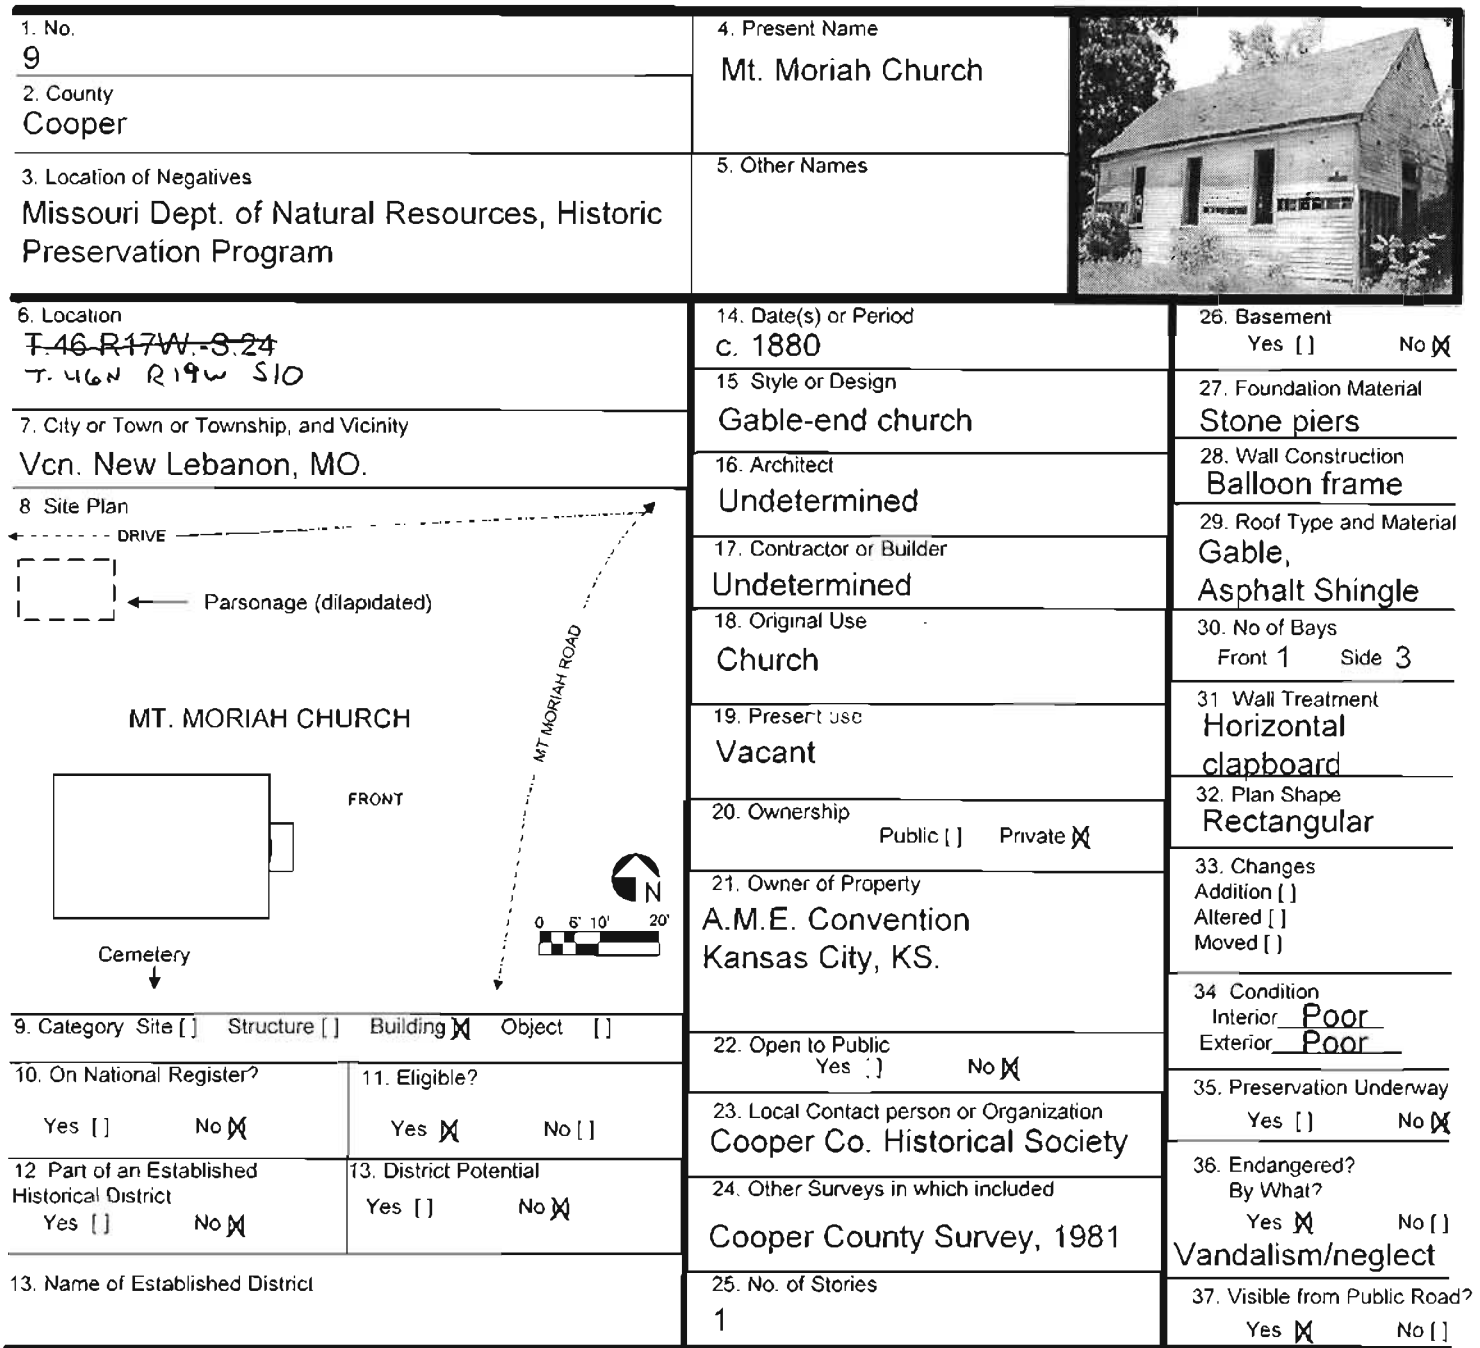 1. No.
9
2. County
Cooper
3. Location of Negatives
Missouri Dept. of Natural Resources, Historic
Preservation Program
4. Present Name
Mt. Moriah Church
5. Other Names
6. Location
T.46 R17W.-S.24
T. 46N R19W S10
7. City or Town or Township, and Vicinity
Vcn. New Lebanon, MO.
8 Site Plan
DRIVE
Parsonage (dilapidated)
MT MORIAH ROAD
MT. MORIAH CHURCH
FRONT
N
0 5' 10' 20'
Cemetery
9. Category Site [ ] Structure [ ] Building [X] Object [ ]
10. On National Register?
Yes [ ] No [X]
11. Eligible?
Yes [X] No [ ]
12 Part of an Established
Historical District
Yes [ ] No [X]
13. District Potential
Yes [ ] No [X]
13. Name of Established District
14. Date(s) or Period
c. 1880
15 Style or Design
Gable-end church
16. Architect
Undetermined
17. Contractor or Builder
Undetermined
18. Original Use
Church
19. Present use
Vacant
20. Ownership
Public [ ] Private [X]
21. Owner of Property
A.M.E. Convention
Kansas City, KS.
22. Open to Public
Yes [ ] No [X]
23. Local Contact person or Organization
Cooper Co. Historical Society
24. Other Surveys in which included
Cooper County Survey, 1981
25. No. of Stories
1
26. Basement
Yes [ ] No [X]
27. Foundation Material
Stone piers
28. Wall Construction
Balloon frame
29. Roof Type and Material
Gable,
Asphalt Shingle
30. No of Bays
Front 1 Side 3
31 Wall Treatment
Horizontal
clapboard
32. Plan Shape
Rectangular
33. Changes
Addition [ ]
Altered [ ]
Moved [ ]
34 Condition
Interior Poor
Exterior Poor
35. Preservation Underway
Yes [ ] No [X]
36. Endangered?
By What?
Yes [X] No [ ]
Vandalism/neglect
37. Visible from Public Road?
Yes [X] No [ ]